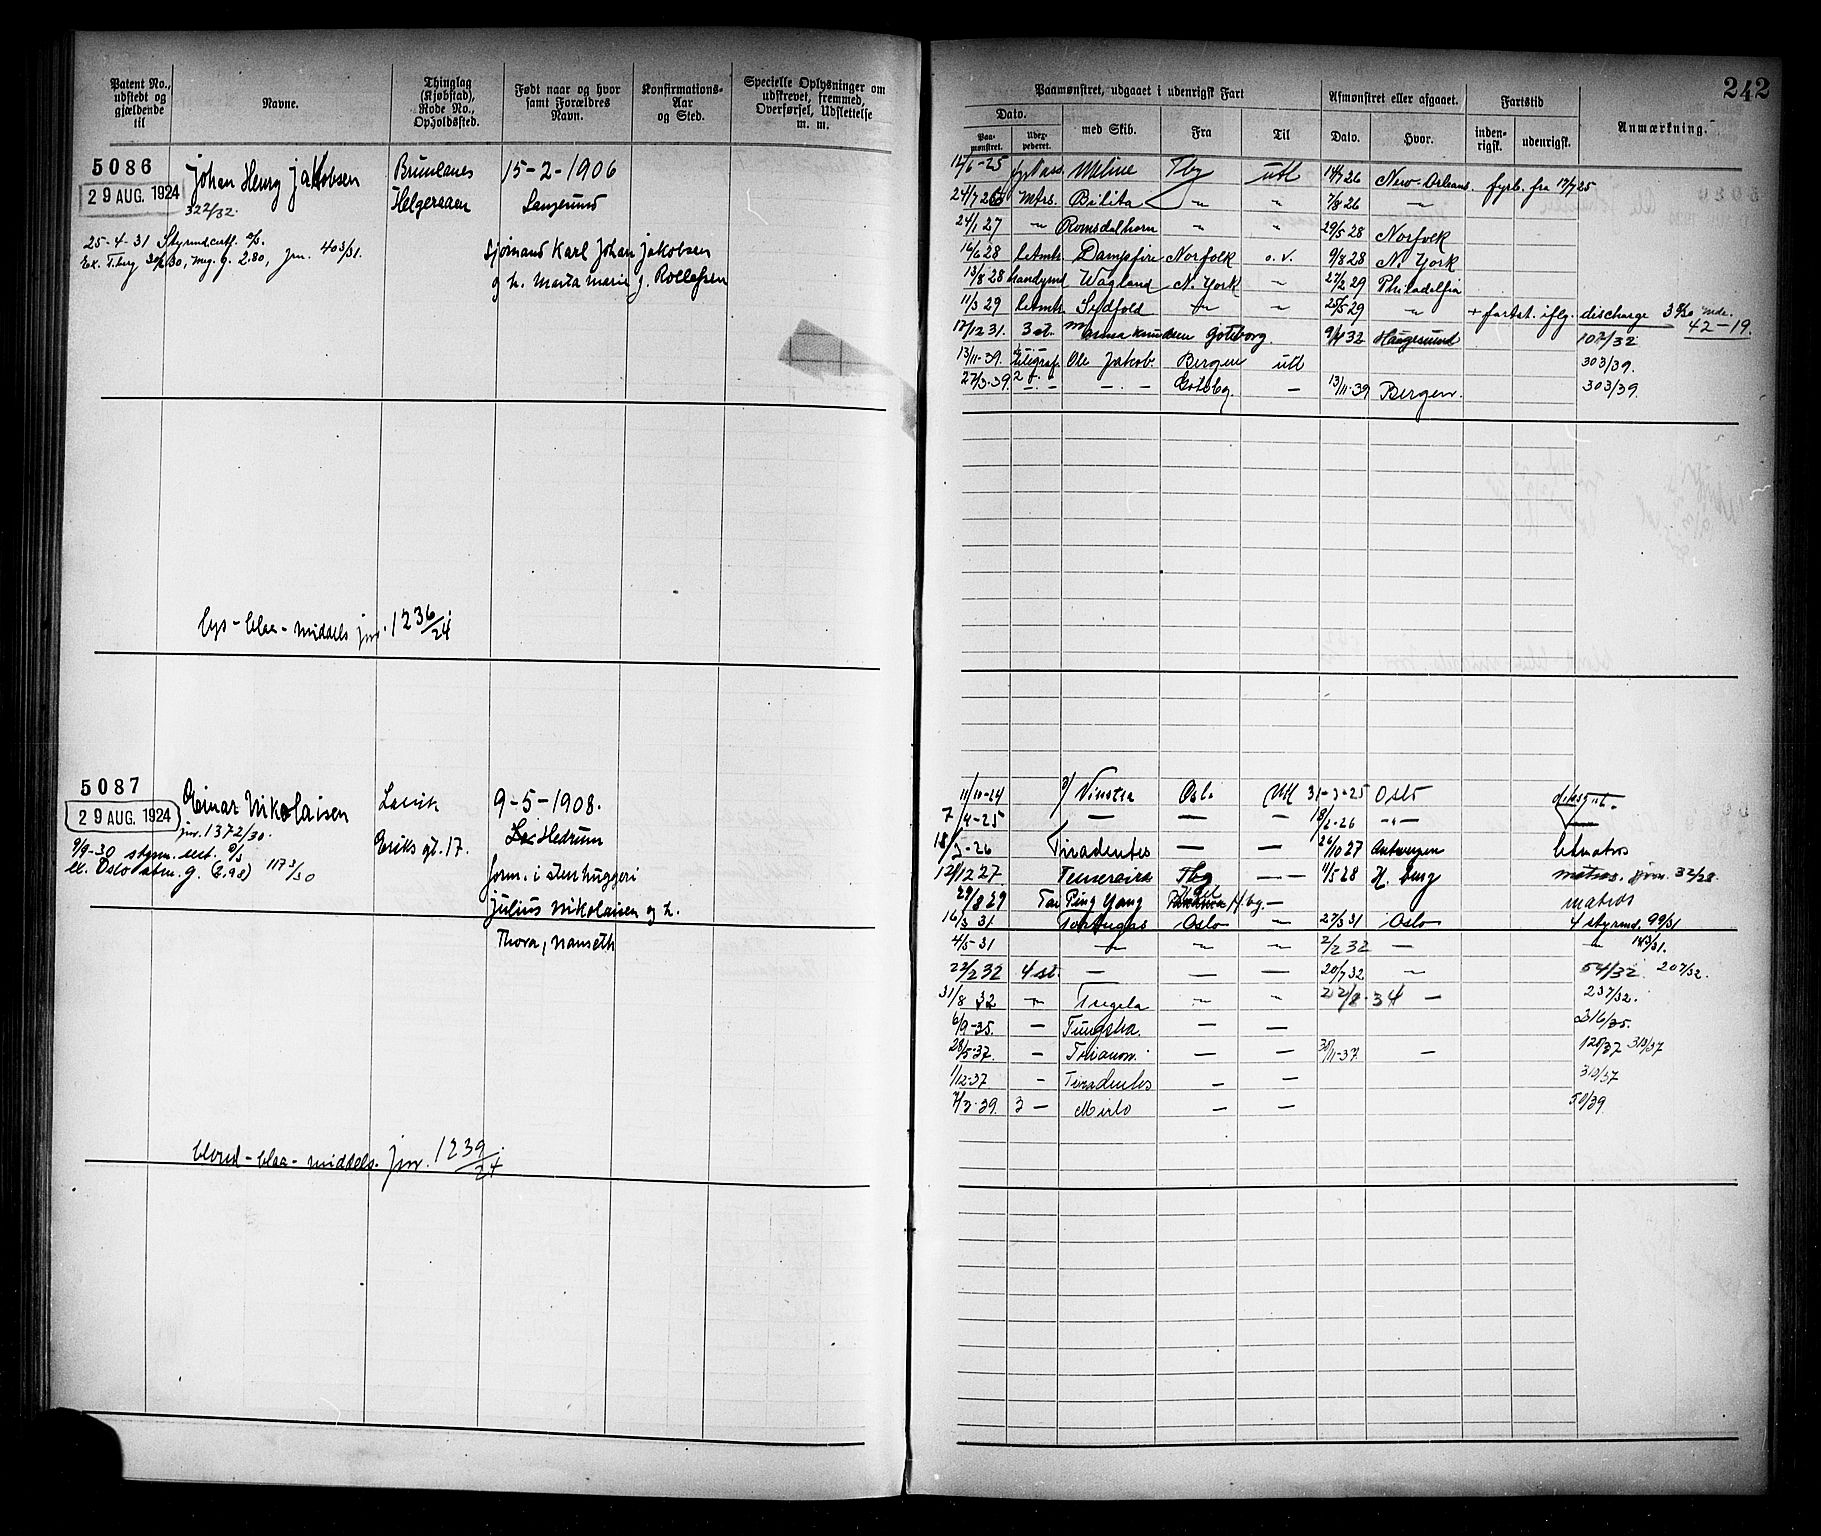 242
Patent No., udstedt og gjældende til
Navne.
Thinglag (Kjøbstad), Rode No., Opholdssted.
Født naar og hvor samt Forældres Navn.
Konfirmations-Aar og Sted.
Specielle Oplysninger om udstrevet, fremmed, Overførsel, Udslettelse m. m.
Paamønstret, udgaaet i udenrigsk Fart
Afmønstret eller afgaaet.
Fartstid
Anmærkning.
Dato.
Paa-mønstret.
Udex-pederet.
med Skib.
Fra
Til
Dato.
Hvor.
inden-rigsk.
udenrigsk.
5086
29 AUG. 1924
Johan Henry Jakobsen
322/32.
Brunlanes
Helgeroaen
15-2-1906
Langesund
sjømand Karl Johan Jakobsen
og h. Marta Marie g. Rollefsen
25-4-31
403/31.
lys - blaa - middels jnr. 1236/24
12/6-25 Meline Tbg utl 14/7 26 New-Orleans. fyrb. fra 17/7 25
Mtrs. Belita – " 7/8 26 –
24/1 27 – Romsdalhorn – " 29/5 28 Norfolk
16/6 28 Letmtr Dampfire Norfolk o.v. 9/8 28 N. York
13/8 28 Wagland N. York – 27/2 29 Philadelfia
11/3 29 Letmtr Sydfold – – 25/5 29 – + fartst. iflg. discharge
42-19.
17/12 31. 3 st. Anna Knudsen Gøteborg. 9/4 32 Haugesund 107/32
13/11-39. Ole Jakob. Bergen utl 303/39.
27/3-39. 2 – – Gøtebg. – 13/11-39 Bergen. 303/39.
5087
29 AUG. 1924
Einar Nikolaisen
jnr. 1372/30.
Larvik
Eriks gt. 17.
9-5-1908.
Hedrum
form. i stenhuggeri
Julius Nikolaisen og h.
Thora, Nanseth
9/9-30 styrm. sert.
1173/30
blond - blaa - middels. jnr. 1239/24
11/11-24 Vinstra Oslo Utl 31-3-25 Oslo
7/4-25 – – – 18/2-26 –
18/3-26 Tiradentes – – 26/10 27 Antwerpen letmatros
12/12 27 Temeraire Tbg – 11/5 28 H. burg matros. jnr. 32/28
29/8 29 Tai Ping Yang H.bg. – matros
16/3 31 Tortugas Oslo – 27/3 31 Oslo 4 styrmd. 99/31
4/5-31 – – – 2/2 32 – – 183/31.
22/2 32 4 st – – – 20/7 32 – 54/32 207/32.
31/8 32 – Tricolor – – 22/8-34 – 237/32.
6/9-35. – Tungsha – – 316/35.
28/5-37. – Trianon. – – 30/11-37 – 120/37 313/37
1/12-37 – Tiradentes – – 313/37
7/3-39. 3 – Mirlo – – 50/39